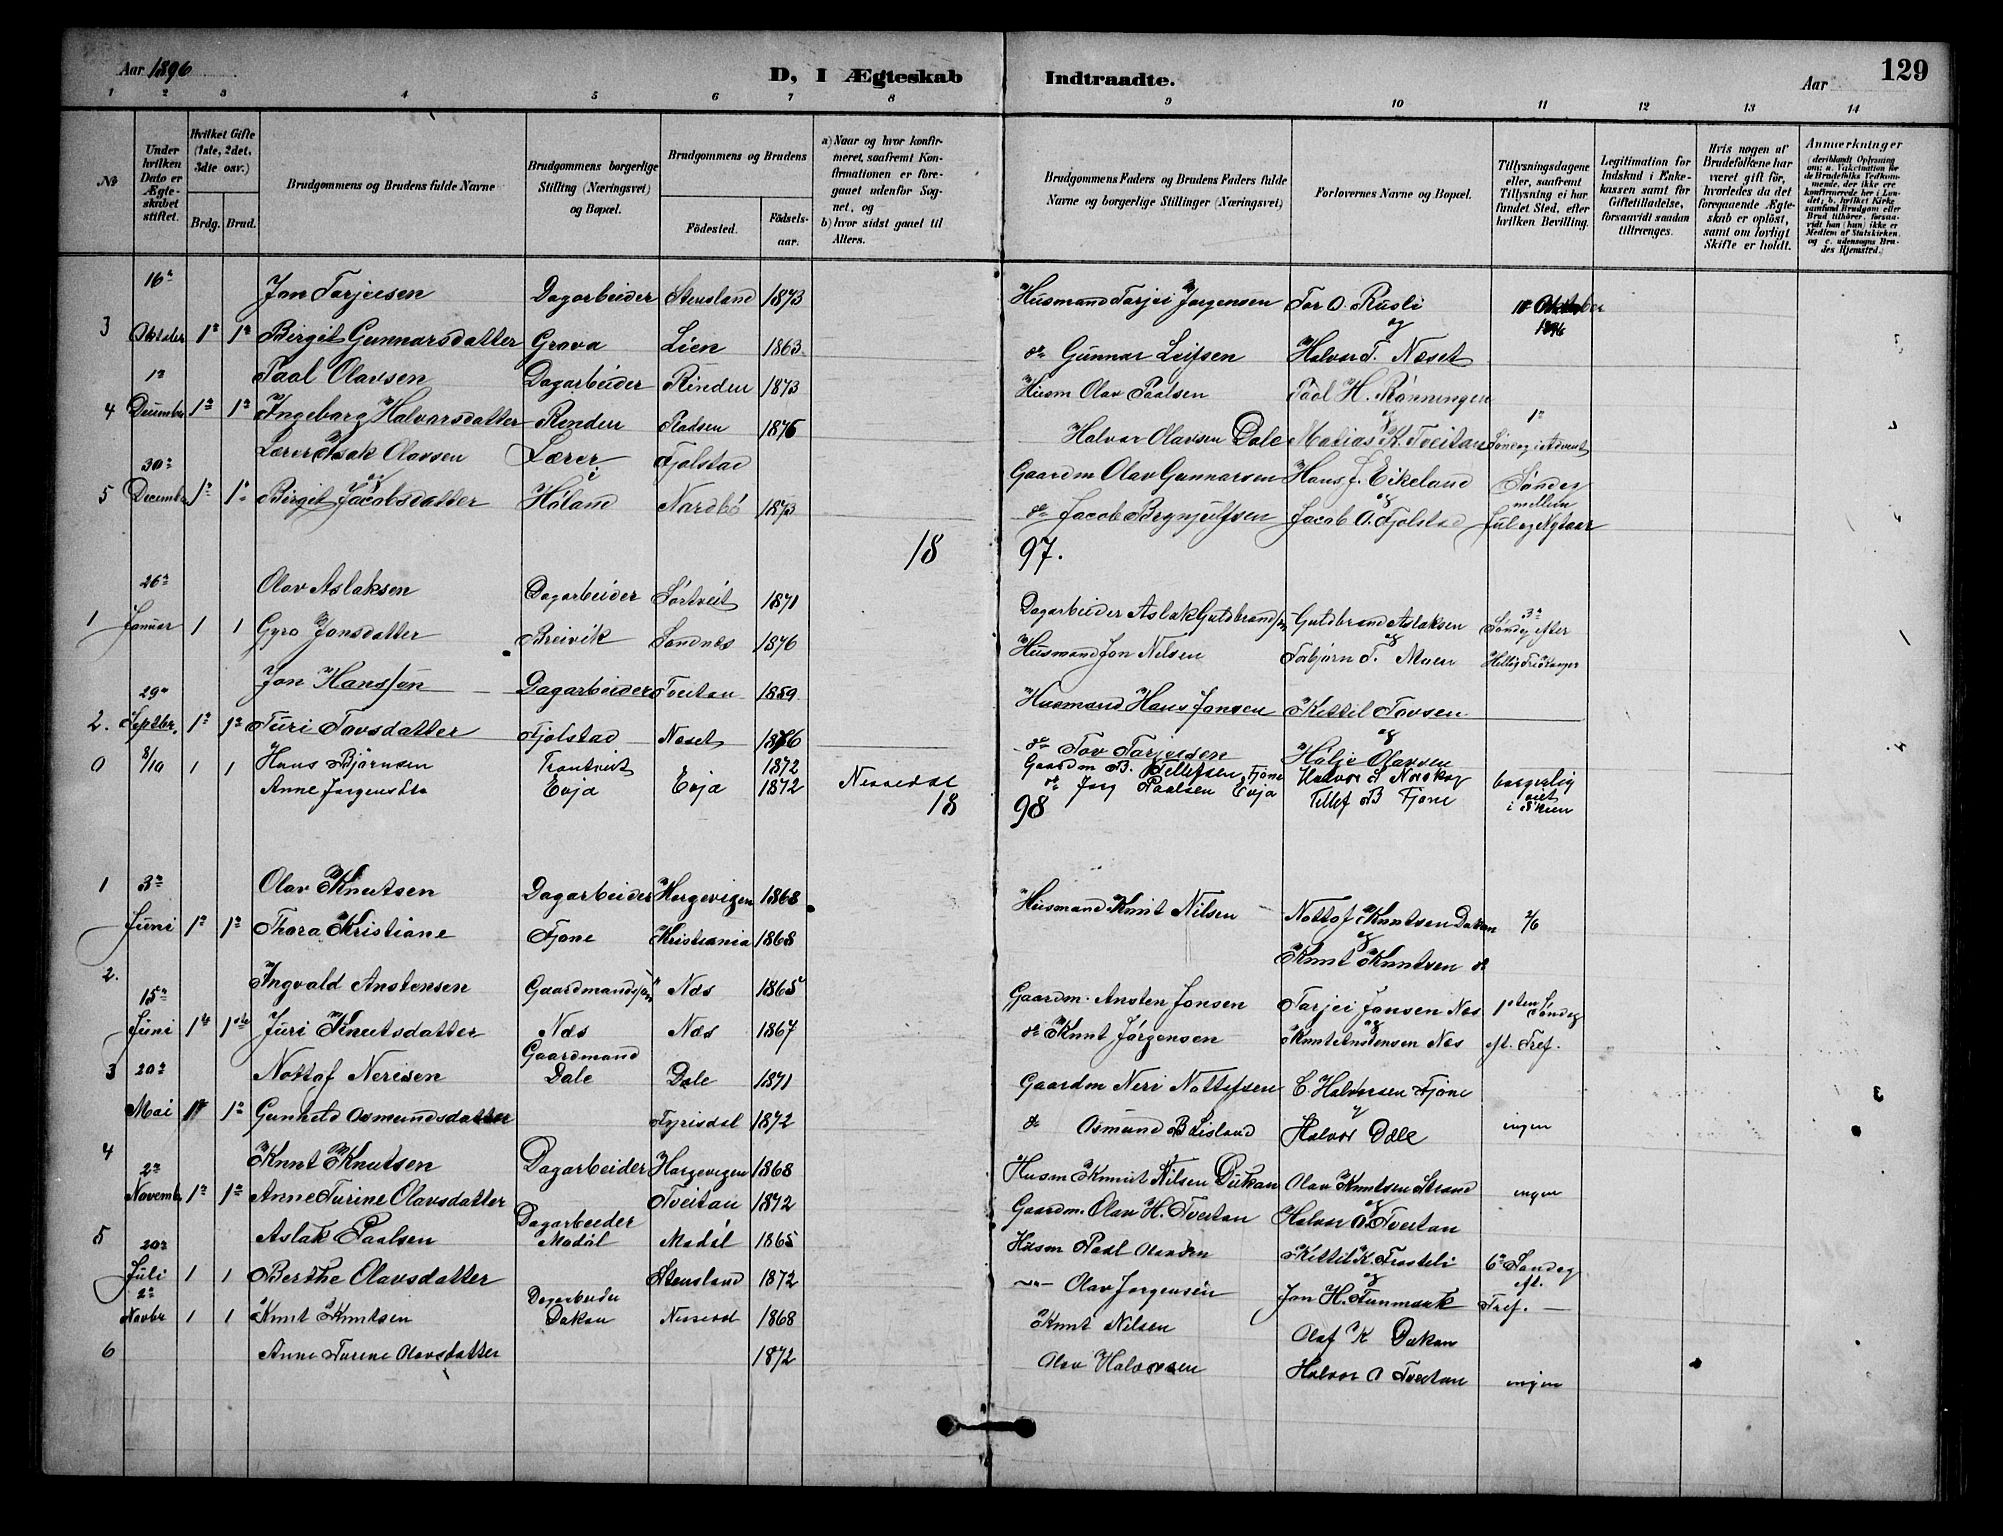 Aar 1896
D, I Ægteskab Indtraadte.
Aar
129
1 2 3 4 5 6 7 8 9 10 11 12 13 14
№
Under hvilken Dato er Ægteskabet stiftet.
Hvilket Gifte (1ste, 2det, 3die osv.)
Brdg. Brud.
Brudgommens og Brudens fulde Navne
Brudgommens borgerlige Stilling (Næringsvei) og Bopæl.
Brudgommens og Brudens
Födested.
Födselsaar.
a) Naar og hvor konfirmeret, saafremt Konfirmationen er foregaaet udenfor Sognet, og
b) hvor sidst gaaet til Alters.
Brudgommens Faders og Brudens Faders fulde Navne og borgerlige Stillinger (Næringsvei)
Forlovernes Navne og Bopæl.
Tillysningsdagene eller, saafremt Tillysning ei har fundet Sted, efter hvilken Bevilling.
Legitimation for Indskud i Enkekassen samt for Giftetilladelse, forsaavidt saadan tiltrænges.
Hvis nogen af Brudefolkene har været gift før, hvorledes da det foregaaende Ægteskab er oplöst, samt om lovligt Skifte er holdt.
Anmærkninger (deriblandt Oplysning om: a. Vakcination for de Brudefolks Vedkommende, der ikke ere konfirmerede her i Landet; b. hvilket Kirkesamfund Brudgom eller Brud tilhörer, forsaavidt han (hun) ikke er Medlem af Statskirken, og c. udensogns Brudes Hjemsted.)
16de Jon Tarjeisen Dagarbeider Stensland 1873 Husmand Tarjei Jørgensen Tor O. Rusli Oktober
3 Oktober 1ste 1ste Birgit Gunnarsdatter Grava Lien 1863 do Gunnar Leifsen og Halvor T. Næset 1896
1ste Paal Olavsen Dagarbeider Rinden 1873 Husm Olav Paalsen Paal H. Rønningen
4 December 1ste 1ste Ingeborg Halvorsdatter Renden Rødsen 1876 Halvor Olavsen Dale og Matias K. Tveitan 1ste Søndag i Advent
30te Lærer Isak Olavsen Lærer Fjolstad Gaardm Olav Gunnarsen Hans J. Eikeland Søndag
5 December 1ste 1ste og Birgit Jacobsdatter i Høland Nordbö 1873 do Jacob Brynjulfsen og Jacob O. Fjolstad mellem Jul og Nytaar
1897.
26de Olav Aslaksen Dagarbeider Sørtveit 1871 Dagarbeider Aslak Guldbrandsen Guldbrand Aslaksen 3de Søndag efter
1 Januar 1 1 Gyro Jonsdatter Breivik Sandnes 1876 Husmand Jon Nilsen og Torbjørn T. Moen Hellig Tre Konger
29de Jon Hanssen Dagarbeider Tveitan 1859 Husmand Hans Jonsen Kittil Tovsen
2. Septbr. 1ste 1ste Turi Tovsdatter Fjolstad Næset 1876 do Tov Tarjeisen og Hølje Olavsen
0 8/10 1 1 Hans Bjørnsen Trontveit 1872 Gaardm B. Tellefsen Fjone Halvor S Norskog borgerlig
Anne Jørgensdtr Evja Evja 1872 Nissedal do Jørg Paalsen Evja Tellef B Fjone viet i Skien
1898
1 3de Olav Knutsen Dagarbeider Hørgevigen 1868 Husmand Knut Nilsen Nottof Knutsen Dukan 2/6
Juni 1ste 1ste Thora Kristiane Fjone Kristiania 1868 og Knut Knutsen do
2. Ingvald Anstensen Gaardmandssøn Næs 1865 Gaardm. Ansten Jonsen Tarjei Jonsen Næs 1sten Søndag
15de Juni 1ste 1ste Juri Knutsdatter Næs Næs 1867 do Knut Jørgensen og Knut Anstensen Næs eft. Tref.
3 20de Nottof Nerisen Gaardmand Dale Dale 1871 Gaardm Neri Nottofsen C Halvorsen Fjone
Mai 1ste 1ste Gunhild Osmundsdatter Fyrisdal 1872 do Osmund B Lisland og Halvor Dale ingen
4 Knut Knutsen Dagarbeider Hørgevigen 1868 Husm Knut Nilsen Dukan Olav Knutsen Strand
2de Novemb. 1ste 1ste Anne Turine Olavsdatter Tveitan 1872 Gaardm. Olav H. Tveitan og Halvor O. Tveitan ingen
5 Aslak Paalsen Dagarbeider Modöl Modöl 1865 Husm Paal Kittil K. Trosteli 6te Søndag
20de Juli 1 1 Berthe Olavsdatter Stensland 1872 — Olav Jørgensen og Jon H. Funmark eft. Tref.
2de Novbr 1 1 Knut Knutsen Dagarbeider Dukan Nissedal 1868 Knut Nilsen Olaf K Dukan
6 Anne Turine Olavsdatter 1872 Olav Halvorsen Halvor O Tveitan ingen